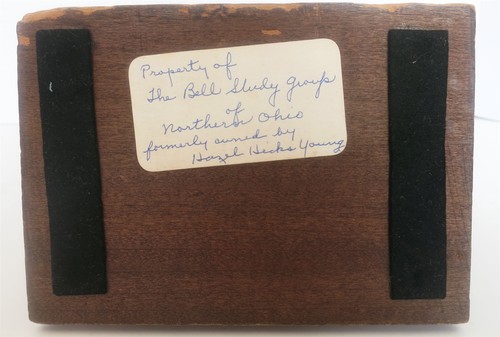 Property of
The Bell Study Group
of
Northern Ohio
formerly owned by
Hazel Hicks Young